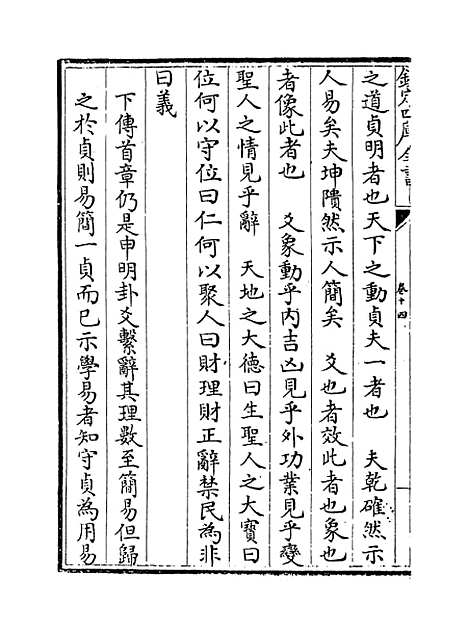 欽定四庫全書
卷十四
之道貞明者也天下之動貞夫一者也　夫乾確然示
人易矣夫坤隤然示人簡矣　爻也者效此者也象也
者像此者也　爻象動乎內吉凶見乎外功業見乎變
聖人之情見乎辭　天地之大德曰生聖人之大寶曰
位何以守位曰仁何以聚人曰財理財正辭禁民為非
曰義
下傳首章仍是申明卦爻繫辭其理數至簡易但歸
之於貞則易簡一貞而已示學易者知守貞為用易